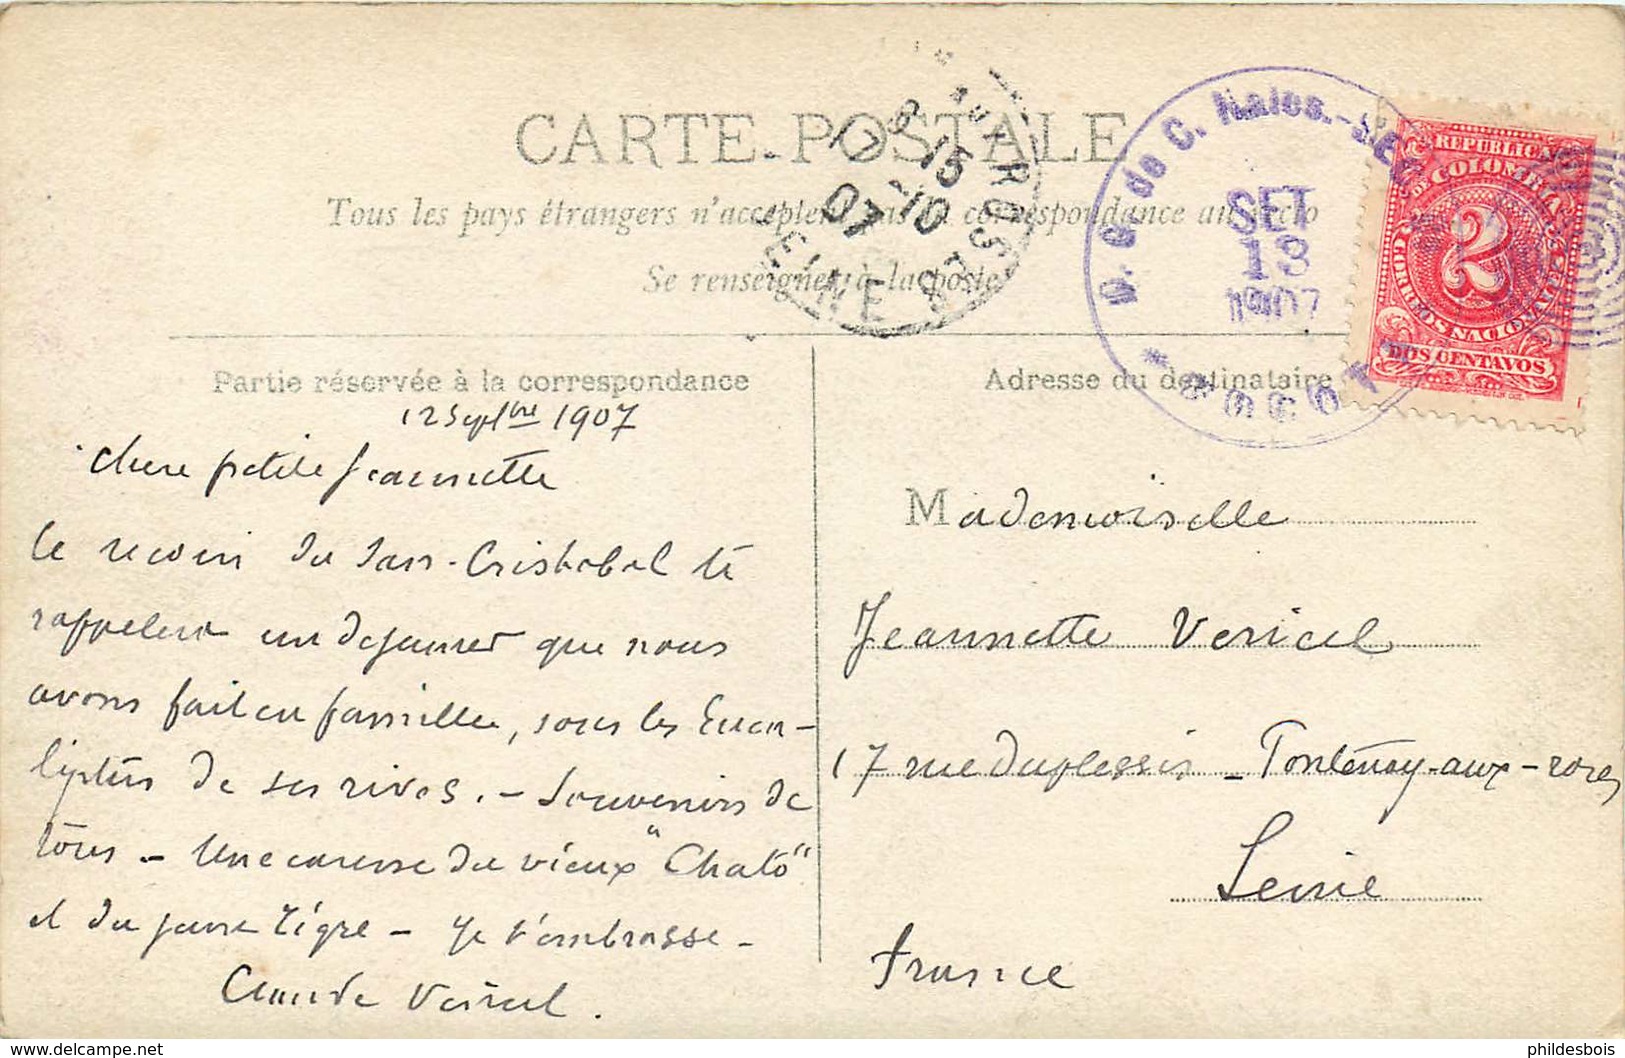 CARTE POSTALE
Tous les pays étrangers n'acceptent pas la correspondance au recto
Se renseigner à la poste
Partie réservée à la correspondance
Adresse du destinataire
AUX ROSES
8 15
17 10
07
SEINE
D. G. de C. Nales.-SEC
SET
13
1907
* BOGOTA *
REPUBLICA
DE COLOMBIA
CORREOS NACIONALES
2
DOS CENTAVOS
12 Septbre 1907
chere petite Jeannette
le recoin du San-Cristobal te
rappelera un dejeuner que nous
avons fait en famille, sous les Euca-
liptus de ses rives. - Souvenirs de
tous - Une caresse du vieux "Chato"
et du jeune Tigre - Je t'embrasse -
Claude Vericel.
Mademoiselle
Jeannette Vericel
17 rue Duplessis - Fontenay-aux-roses
Seine
France
phildesbois
https://www.delcampe.net